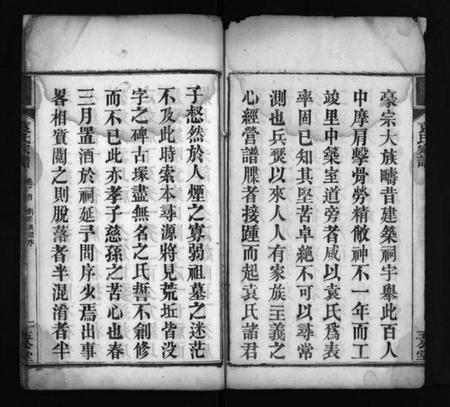 豪宗大族疇昔建築祠宇舉此百人
中摩肩擊骨勞精敝神不一年而工
竣里中築室道旁者咸以袁氏爲表
率固已知其堅苦卓絶不可以尋常
測也兵燹以來人人有家族主義之
心經營譜牒者接踵而起袁氏諸君
子愀然於人煙之寡弱祖墓之迷茫
不及此時索本尋源將見荒坵皆沒
字之碑古塚盡無名之氏誓不刱修
而不已此亦孝子慈孫之苦心也春
三月置酒於祠延予問序少焉出事
畧相質閱之則脫落者半混淆者半